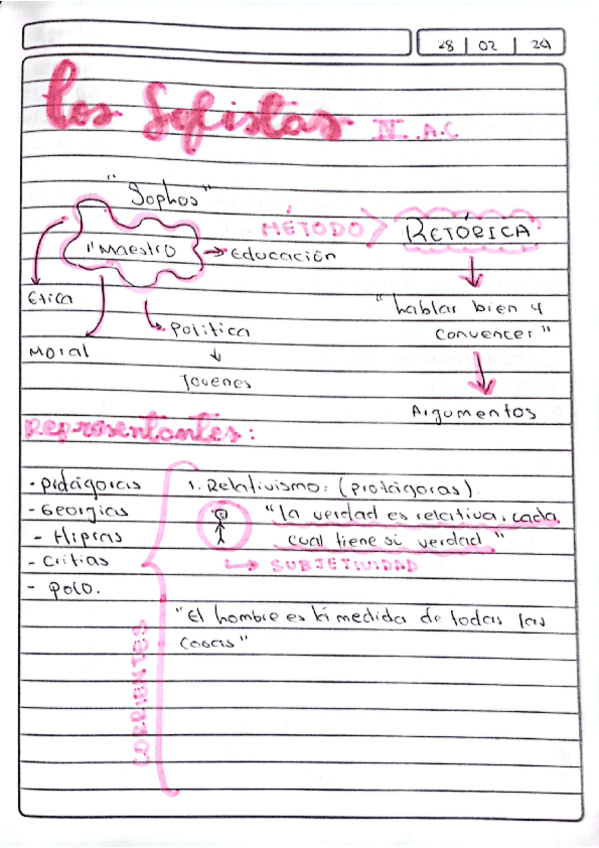 28 | 02 | 24
los Sofistas IV. A.C
"Sophos"
"Maestro
Educación
MÉTODO
RETÓRICA
Etica
Moral
Politica
Jovenes
"hablar bien y
convencer"
Argumentos
Representantes:
- Georgias
- Critias
- Polo.
CORRIENTES
1. Relativismo: (protágoras).
"la verdad es relativa, cada
cual tiene su verdad."
SUBJETIVIDAD
"El hombre es la medida de todas las
cosas"